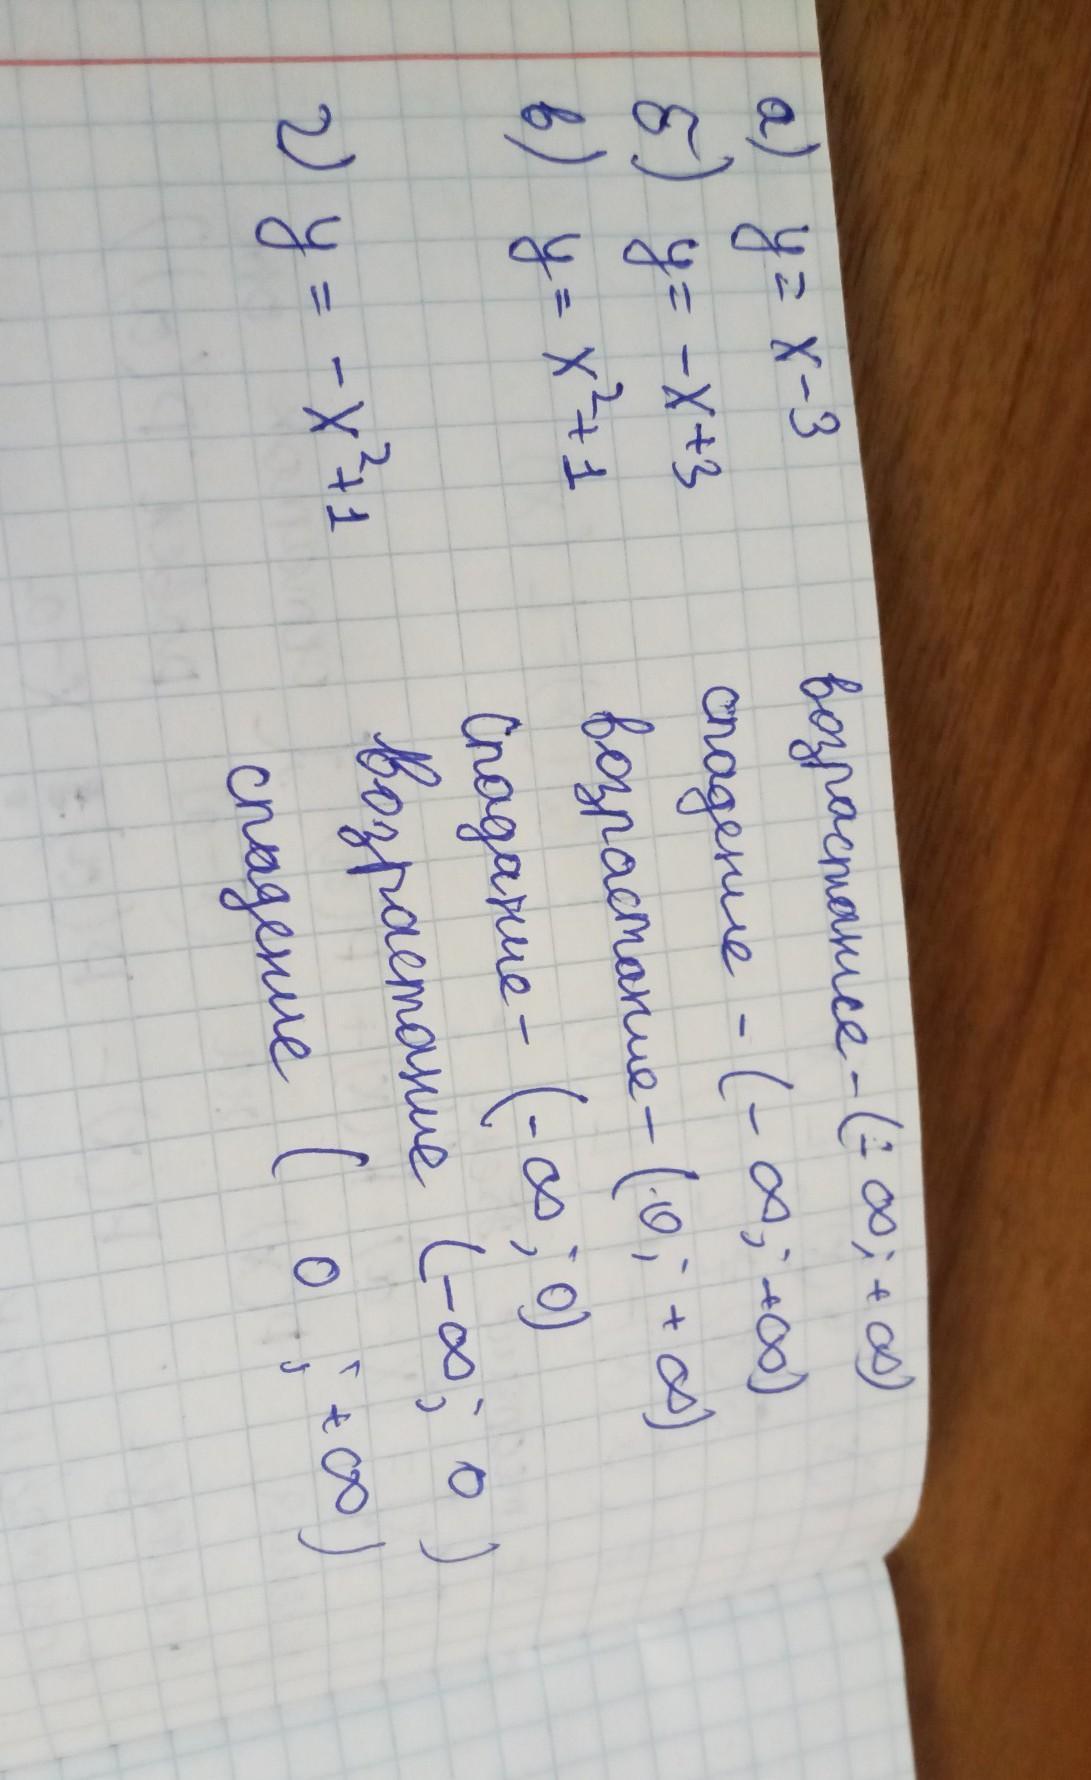 а) y = x - 3 возрастание - (- ∞; + ∞)
б) y = -x+3 спадение - (- ∞; +∞)
в) y = x²+1 возрастание - (0; + ∞)
спадание - (-∞; 0)
г) y = -x²+1 возрастание (-∞; 0)
спадение (0; +∞)